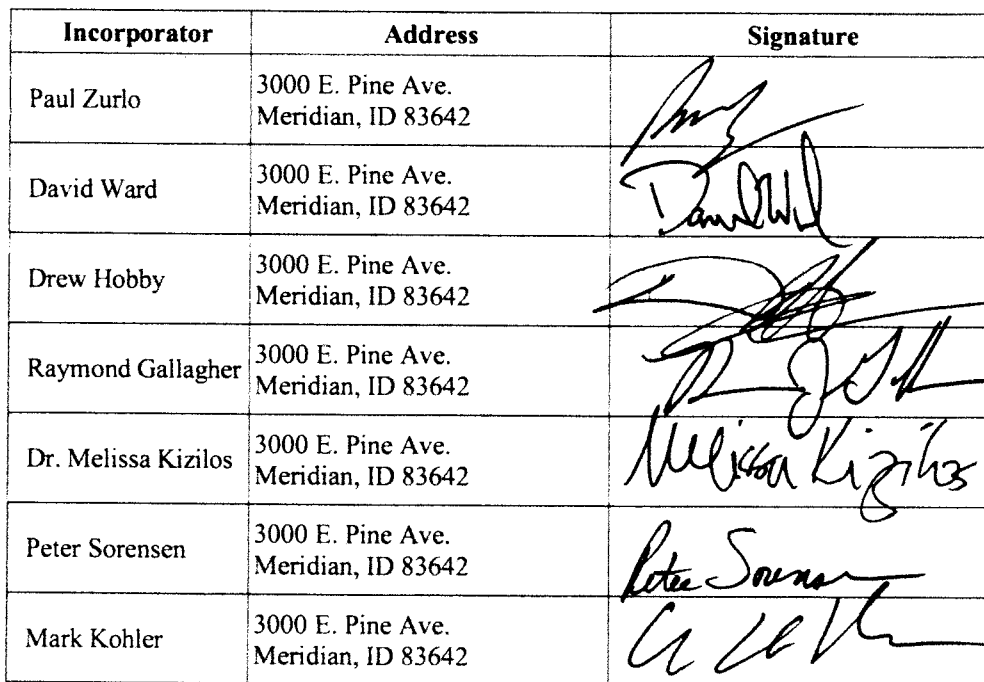 Incorporator Address Signature
Paul Zurlo 3000 E. Pine Ave.
Meridian, ID 83642
David Ward 3000 E. Pine Ave.
Meridian, ID 83642
David Wd
Drew Hobby 3000 E. Pine Ave.
Meridian, ID 83642
Raymond Gallagher 3000 E. Pine Ave.
Meridian, ID 83642
Dr. Melissa Kizilos 3000 E. Pine Ave.
Meridian, ID 83642
Melissa Kizilos
Peter Sorensen 3000 E. Pine Ave.
Meridian, ID 83642
Peter Sorensen
Mark Kohler 3000 E. Pine Ave.
Meridian, ID 83642